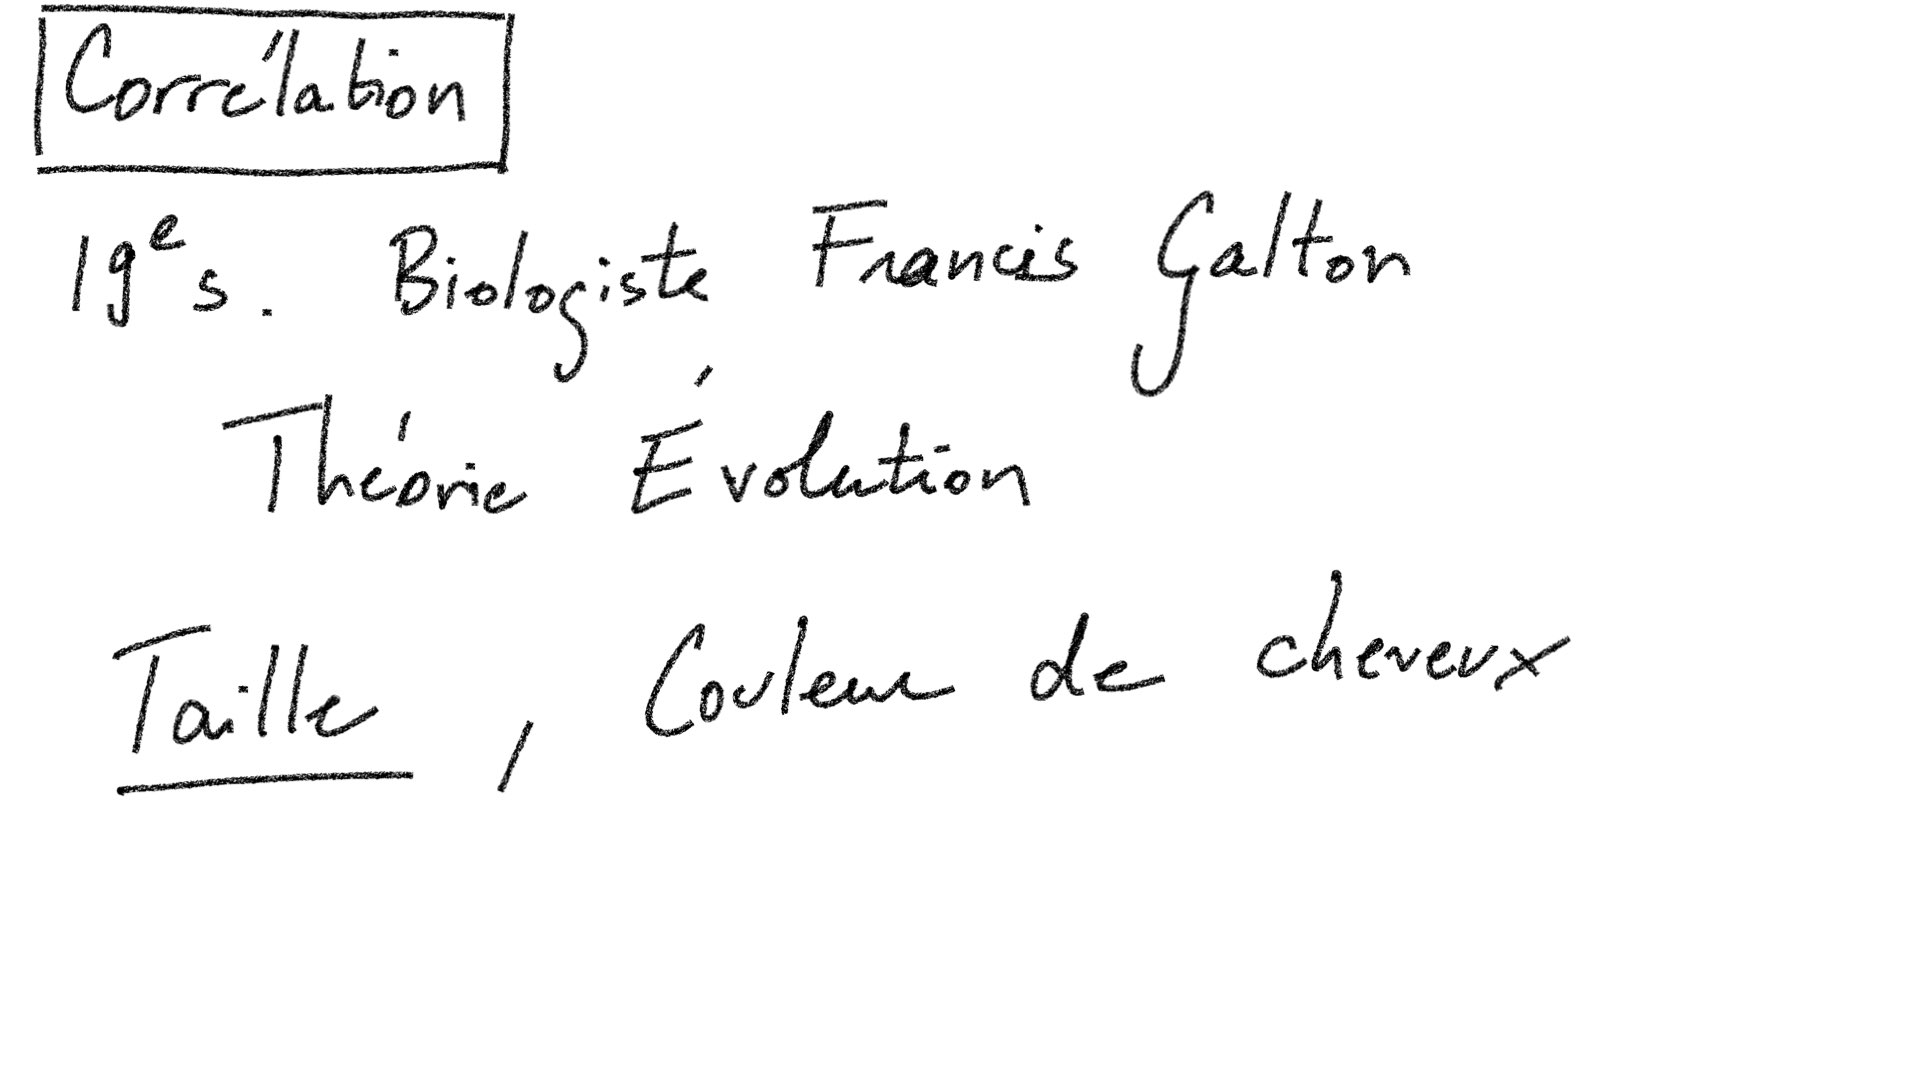 Corrélation
19e s. Biologiste Francis Galton
Théorie Évolution
Taille, Couleur de cheveux